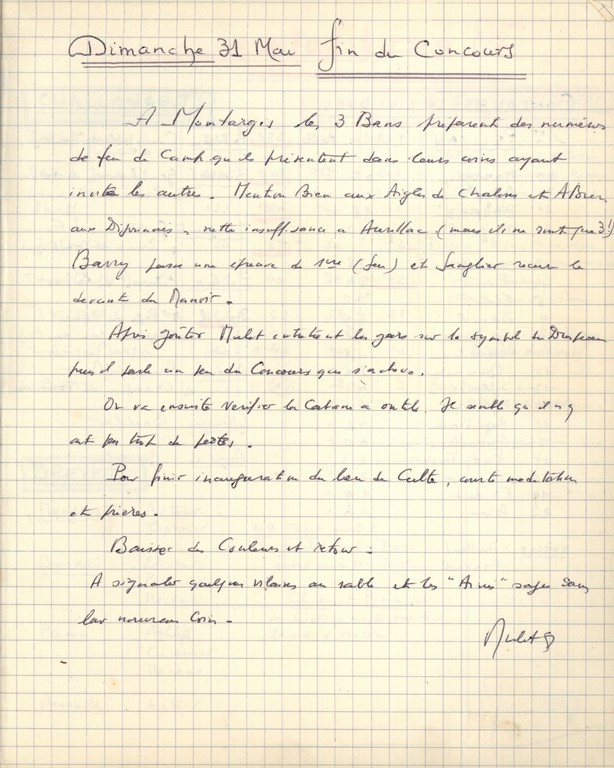 Dimanche 31 Mai fin du Concours
A Montargis les 3 Bans préparent des numéros
de feu de Camp qu'ils présentent dans leurs coins ayant
invité les autres. Mention Bien aux Aigles de Chalons et ABien
aux Dijonnais, nette insuffisance à Aurillac (mais ils ne sont que 3!)
Barry passe une épreuve de 1ère (feu) et Sanglier recure le
devant du Manoir.
Après goûter Mulot entretient les gars sur le symbole du Drapeau
puis il parle un peu du Concours qui s'achève.
On va ensuite vérifier la Cabane à outils. Il semble qu'il n'y
ait pas trop de pertes.
Pour finir inauguration du lieu de Culte, courte méditation
et prières.
Baisser des Couleurs et retour.
A signaler quelques vilaines au sable et les "Aines" dans
leur nouveau Coin.
Mulot